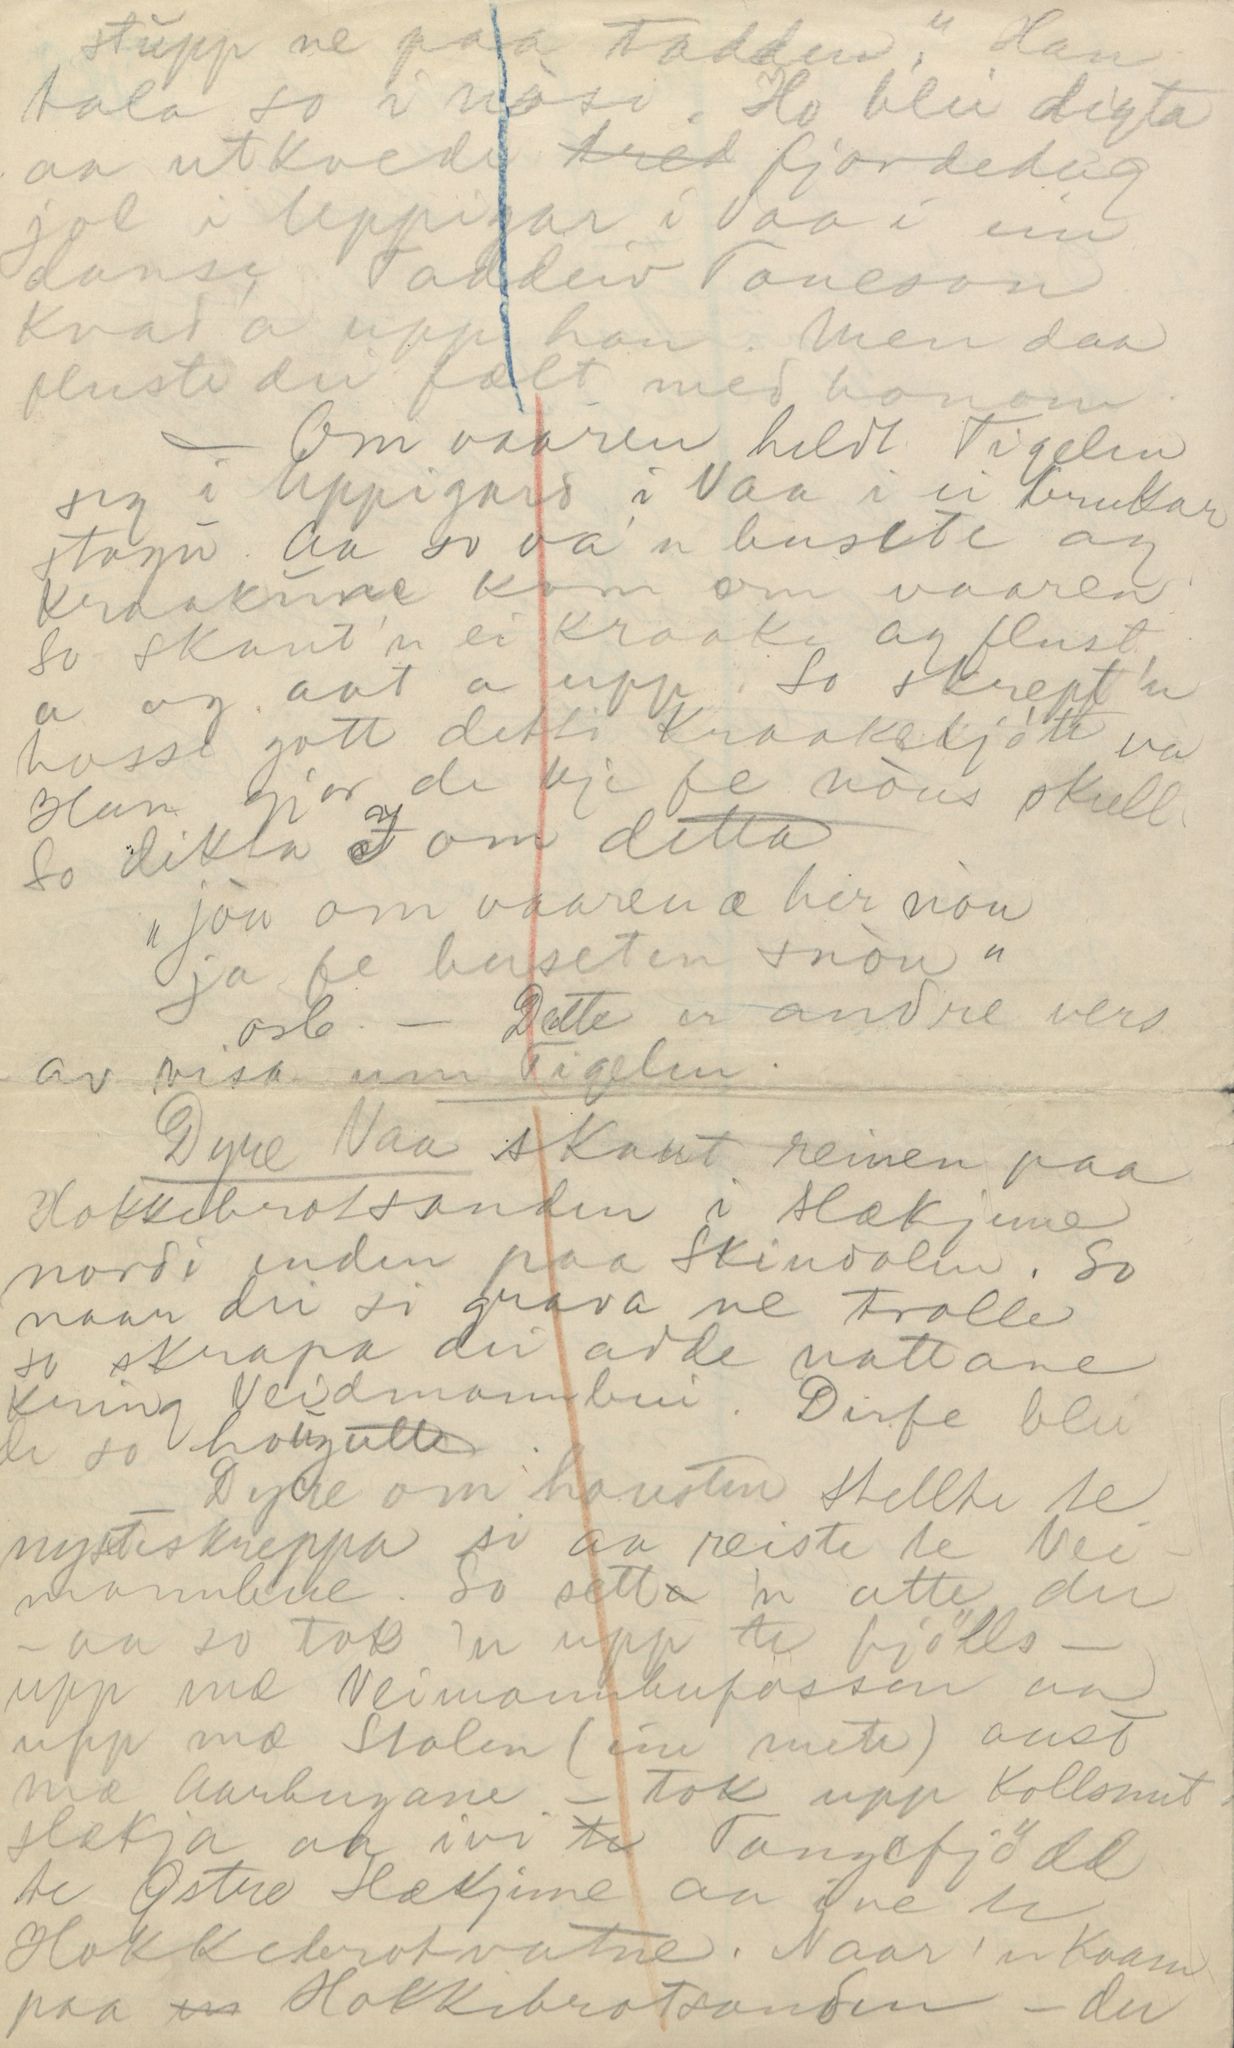 stŭpp ne paa Tadden." Han
tala so i nòsi. Ho blei digta
aa utkvedi tred fjordedag
jol i Uppigar i Vaa i ein
dansi Taddeiv Toneson
kvad a upp han. Men daa
pluste dei fælt med honom.
— Om vaaren heldt Tigelen
seg i Uppigard i Vaa i ei brukar
stogu. Aa so va 'n busete ag
kraakŭne kom om vaaren
So skaut 'n ei kraake ag flust
a og aat a upp. So skrept 'n
hosse gott detti kraakekjøtt va
Han gjor de kje fe nòns skull.
So dikta J om detta
"jòu om vaaren æ her nòu
ja fe buseten snòu"
osb. — Dette er andre vers
av visa um Tigelen.
Dyre Vaa skaut reinen paa
Hokkebrotsanden i Slækjune
nordi enden paa Skindalen. So
naar dei si grava ne trolle
so skrapa dei adde nattane
kring Veidmannbui. Dirfe blei
de so haŭgŭtte.
— Dyre om hausten stellte te
nysteskreppa si aa reiste te Vei-
mannbue. So setta 'n atte der
— aa so tok 'n upp te fjölls —
upp mæ Veimannbufossen aa
upp mæ Stolen (inn mete) aust
mæ Aarbugane — tok upp Kollsnut
slækja aa ivi te Tangefjödd
te Østre Slækjune aa ive te
Hokkebrotvatne. Naar 'n kaam
paa en Hokkebrotsanden — der